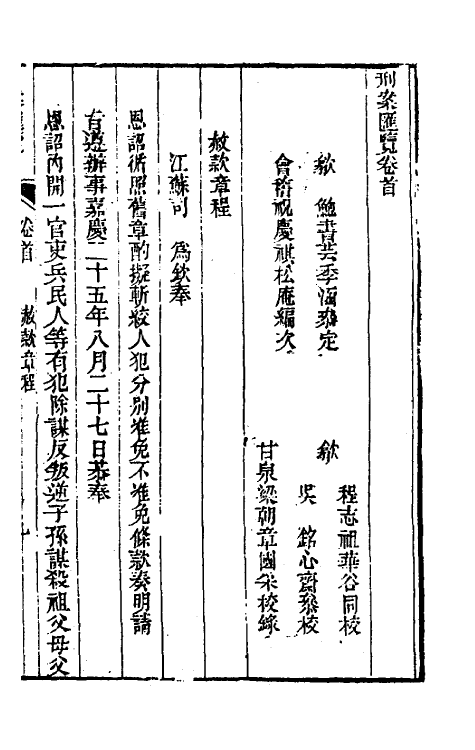 刑案匯覽卷首
程志祖華谷同校
歙　鮑書芸季涵叅定　　歙
吳　銘心齋叅校
會稽祝慶祺松庵編次
甘泉梁朝章國朵校錄
赦款章程
江蘇司　為欽奉
恩詔循照舊章酌擬斬絞人犯分別准免不准免條款奏明請
旨遵辦事嘉慶二十五年八月二十七日恭奉
恩詔內開一官吏兵民人等有犯除謀反叛逆子孫謀殺祖父母父
卷首　赦款章程